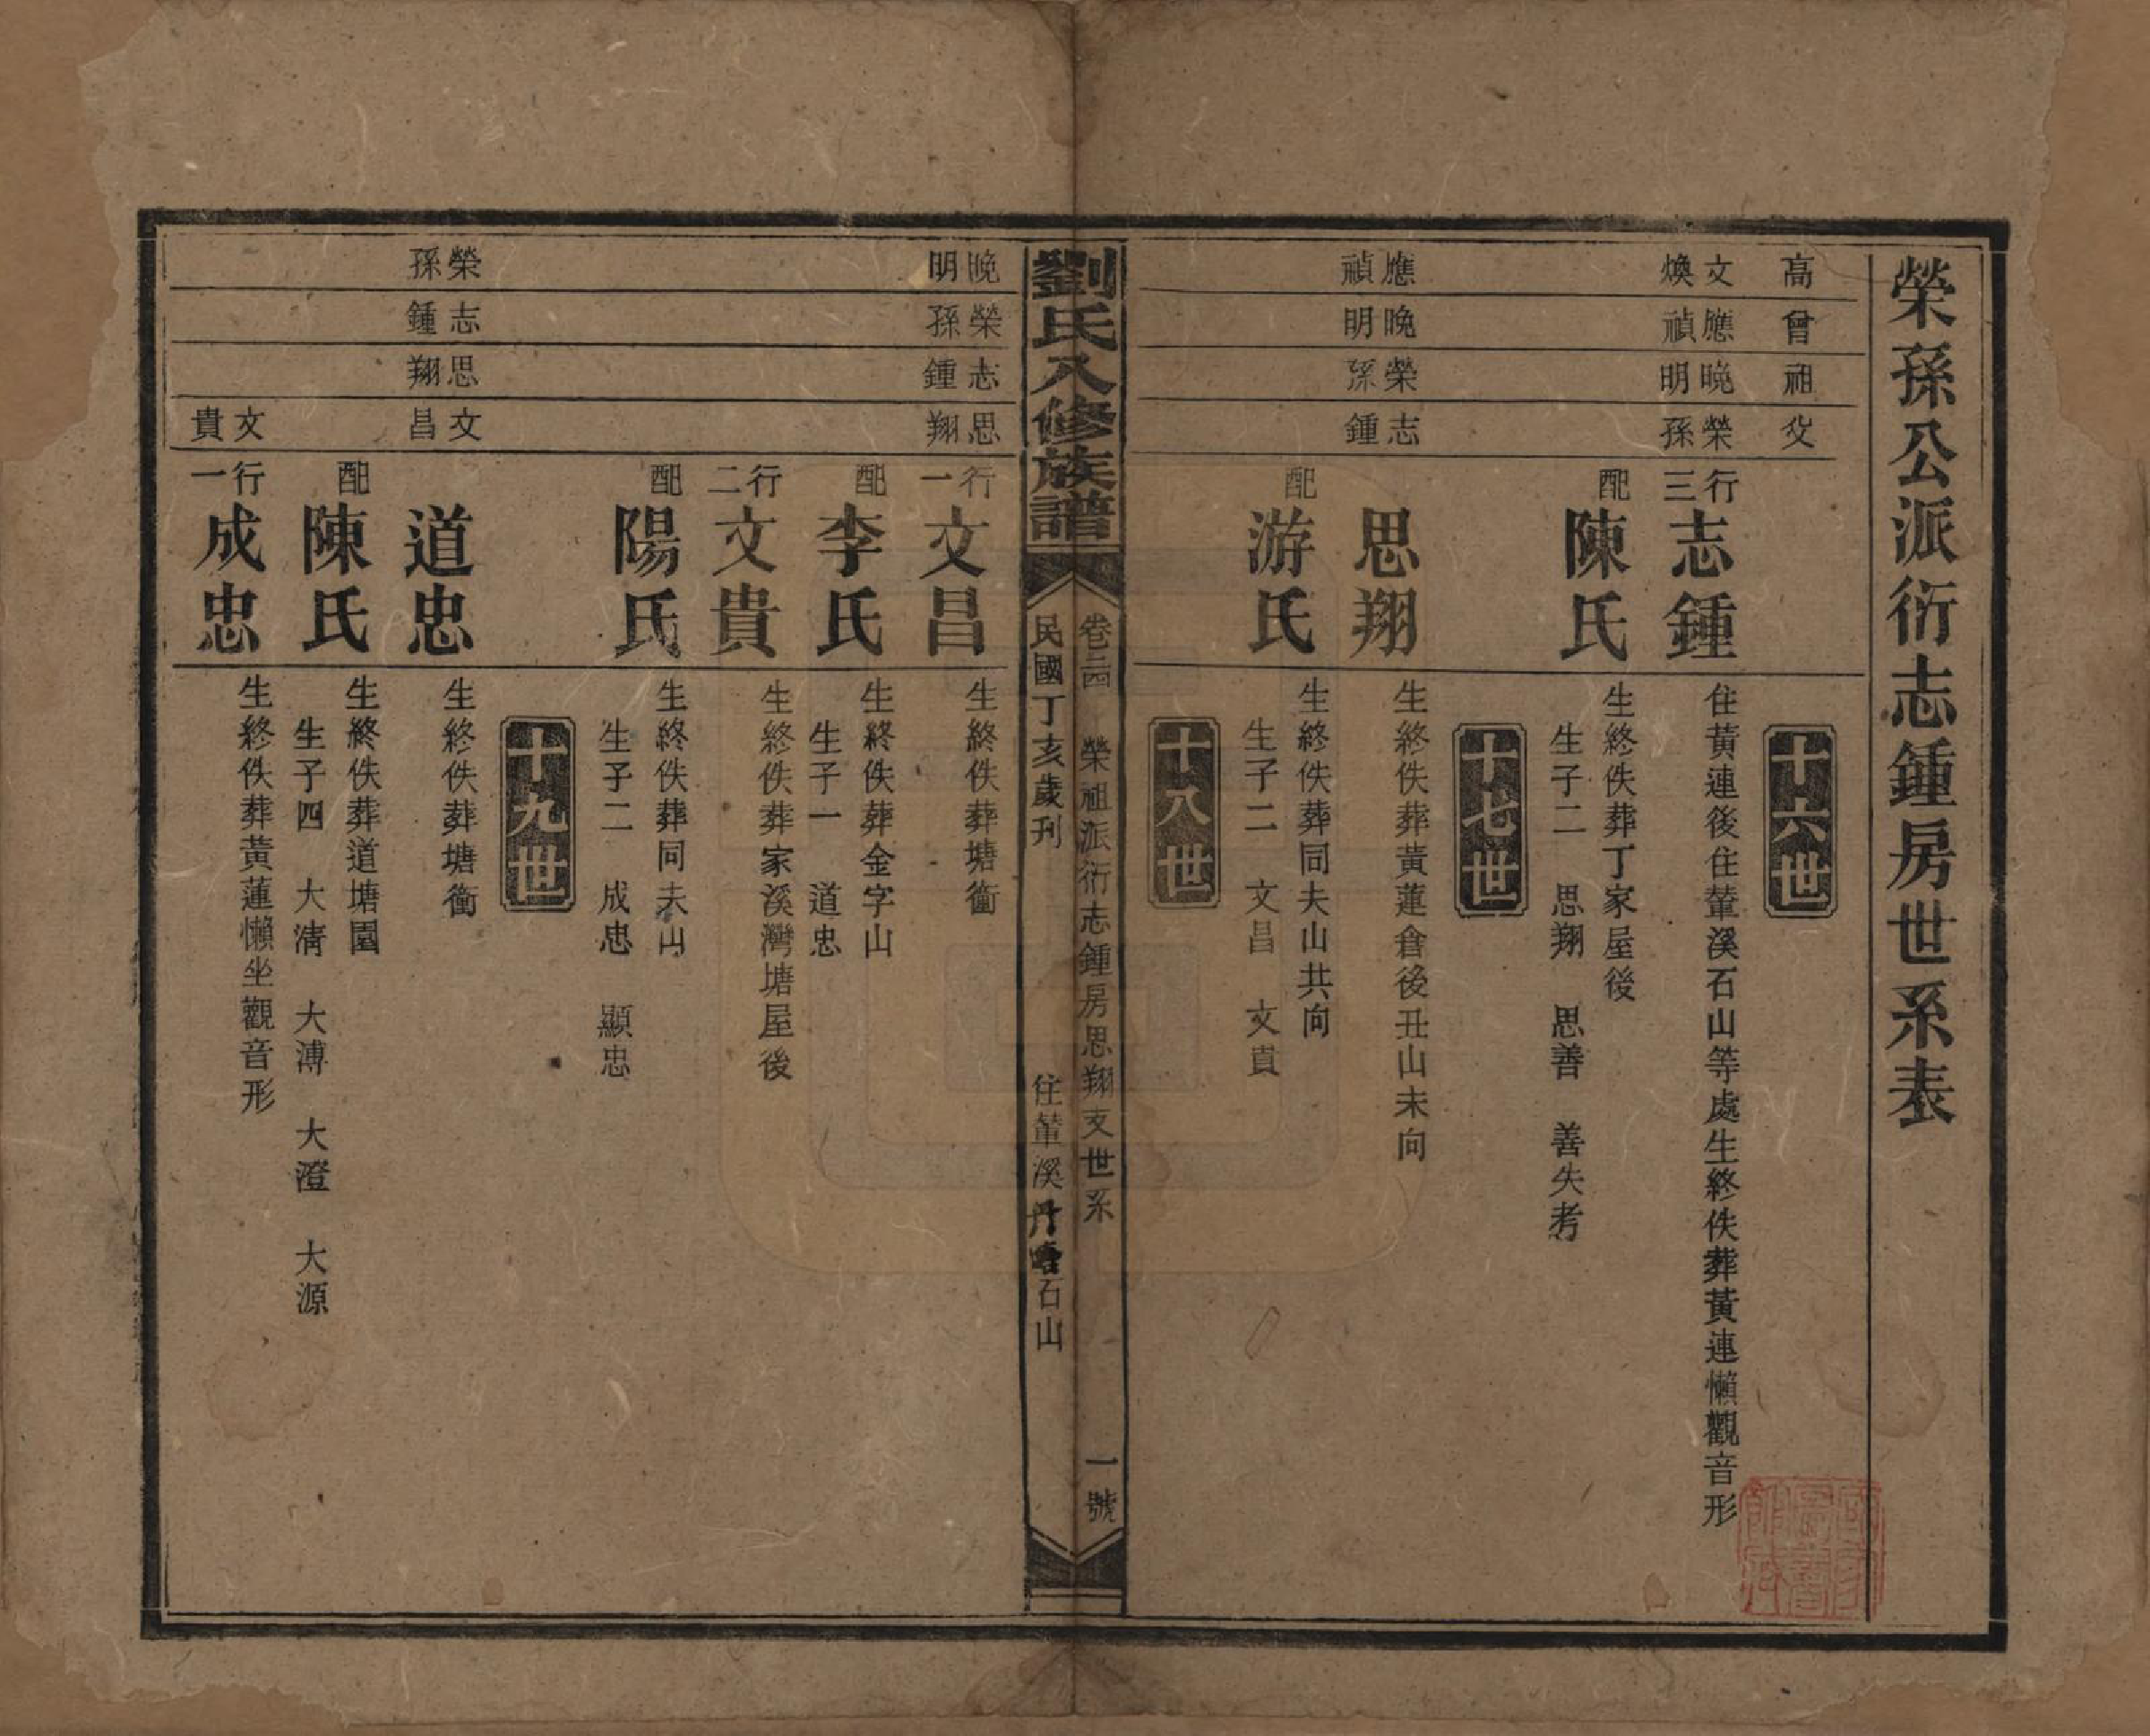 榮孫公派衍志鍾房世系表
高
曾
祖
父
十六世
文煥
應禎
晚明
榮孫
行三
志鍾
住黃連後住輦溪石山等處生終佚葬黃連懶觀音形
配
陳氏
生終佚葬丁家屋後
生子二 思翔 思善 善失考
十七世
應禎
晚明
榮孫
志鍾
思翔
生終佚葬黃蓮倉後丑山未向
配
游氏
生終佚葬同夫山共向
生子二 文昌 文貴
十八世
劉氏八修族譜
卷二四 榮祖派衍志鍾房思翔支世系 一號
民國丁亥歲刊 住輦溪丹 石山
晚明
榮孫
志鍾
思翔
行一
文昌
生終佚葬塘衝
配
李氏
生終佚葬金字山
生子一 道忠
行二
文貴
生終佚葬家溪灣塘屋後
配
陽氏
生終佚葬同夫山
生子二 成忠 顯忠
十九世
榮孫
志鍾
思翔
文昌
道忠
生終佚葬塘衝
配
陳氏
生終佚葬道塘園
生子四 大清 大溥 大澄 大源
文貴
行一
成忠
生終佚葬黃蓮懶坐觀音形